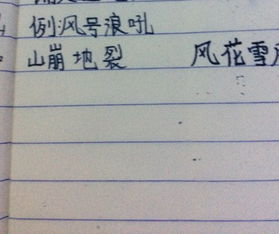 例风号浪吼
山崩地裂 风花雪